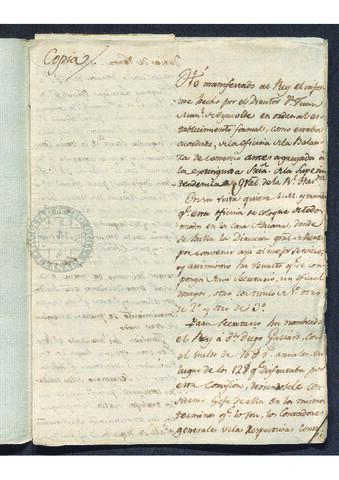 Copia
He manifestado al Rey el infor-
me hecho por el Director Dn Juan
Manl de Oyarvide en orden al es-
tablecimiento formal, como estaba
acordado, de la oficina de la Balan-
za de Comercio antes agregada á
la extinguida Sria de la Superin-
tendencia Gral de la Rl Hazda
En su vista quiere S. M. y manda
qe esta oficina se coloque de todo
en la casa Aduana, donde
se halla la Direccion gral de Rentas
por convenir asi al mejor servicio;
y asimismo ha resuelto qe se com-
ponga de un Secretario, un oficial
mayor, otro con titulo de 1o otro
de 2o y otro de 3o
Para Secretario ha nombrado
el Rey á Dn Diego Gallard, con
el sueldo de 16 anuales, en
lugar de los 12 qe disfrutaba por
esta Comision, deviendosele con-
siderar Gefe de ella en los mismos
terminos qe lo son los Contadores
generales de las respectivas